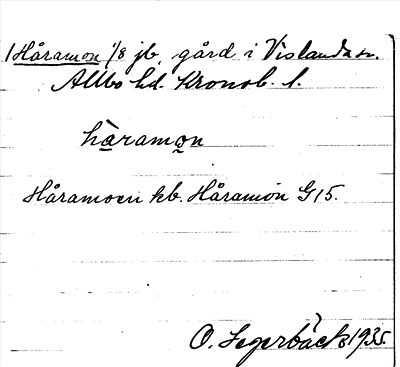 Håramon 1/8 jb, gård i Vislanda sn.
Allbo hd. Kronob. l.
hàramo̤n
Håramoen kb. Håramon G 15.
O. Segerbäck 1935.